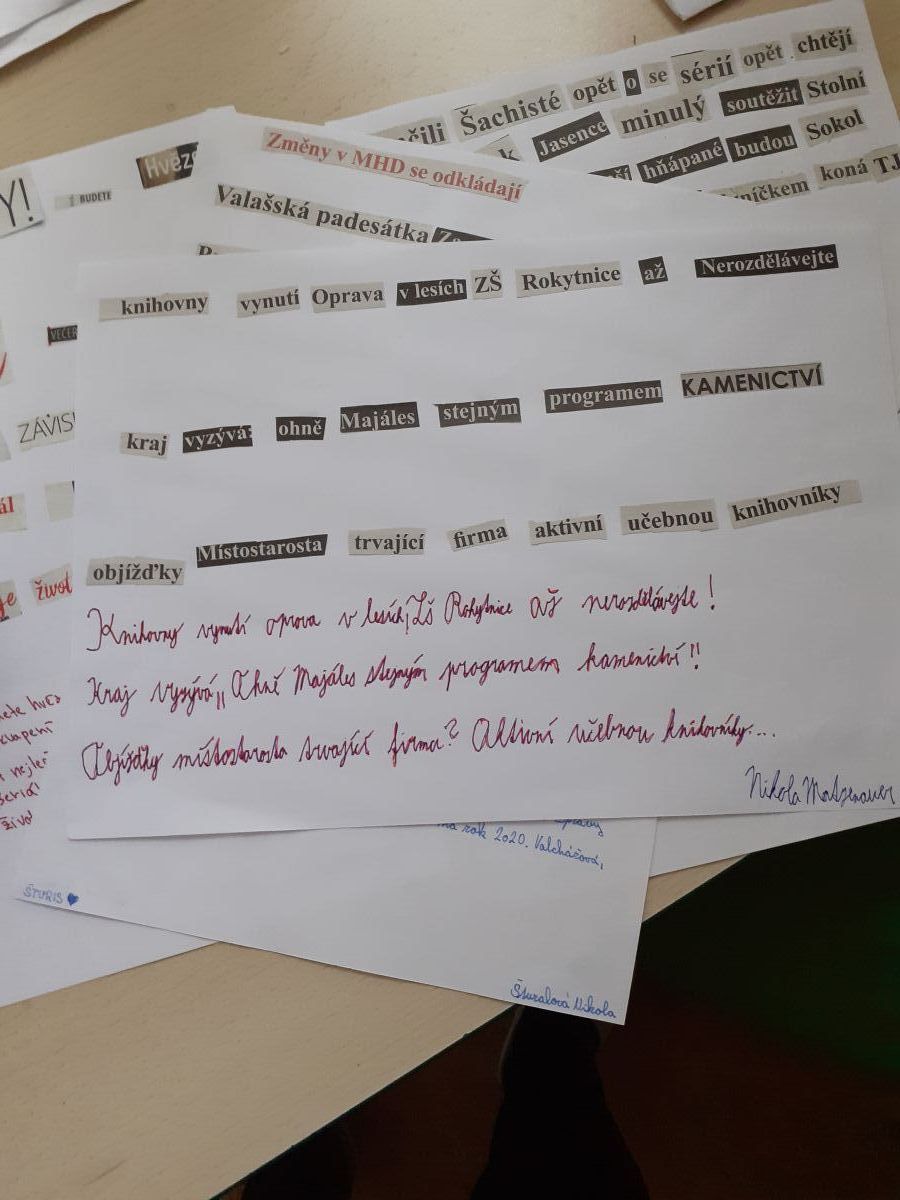 Šachisté opět o se sérií opět chtějí
Jasence minulý soutěžit Stolní
hňápané budou Sokol
koná TJ
Změny v MHD se odkládají
Valašská padesátka
Y!
BUDETE
VEČER
život
knihovny vynutí Oprava v lesích ZŠ Rokytnice až Nerozdělávejte
kraj vyzývá: ohně Majáles stejným programem KAMENICTVÍ
objížďky Místostarosta trvající firma aktivní učebnou knihovníky
Knihovny vynutí oprava v lesích, ZŠ Rokytnice až nerozdělávejte!
Kraj vyzývá,, Ohně Majáles stejným programem kamenictví"!
Objížďky místostarosta trvající firma? Aktivní učebnou knihovníky...
Nikola Matzenauer
život
rok 2020. Valchářová,
ŠTURIS
Šturalová Nikola